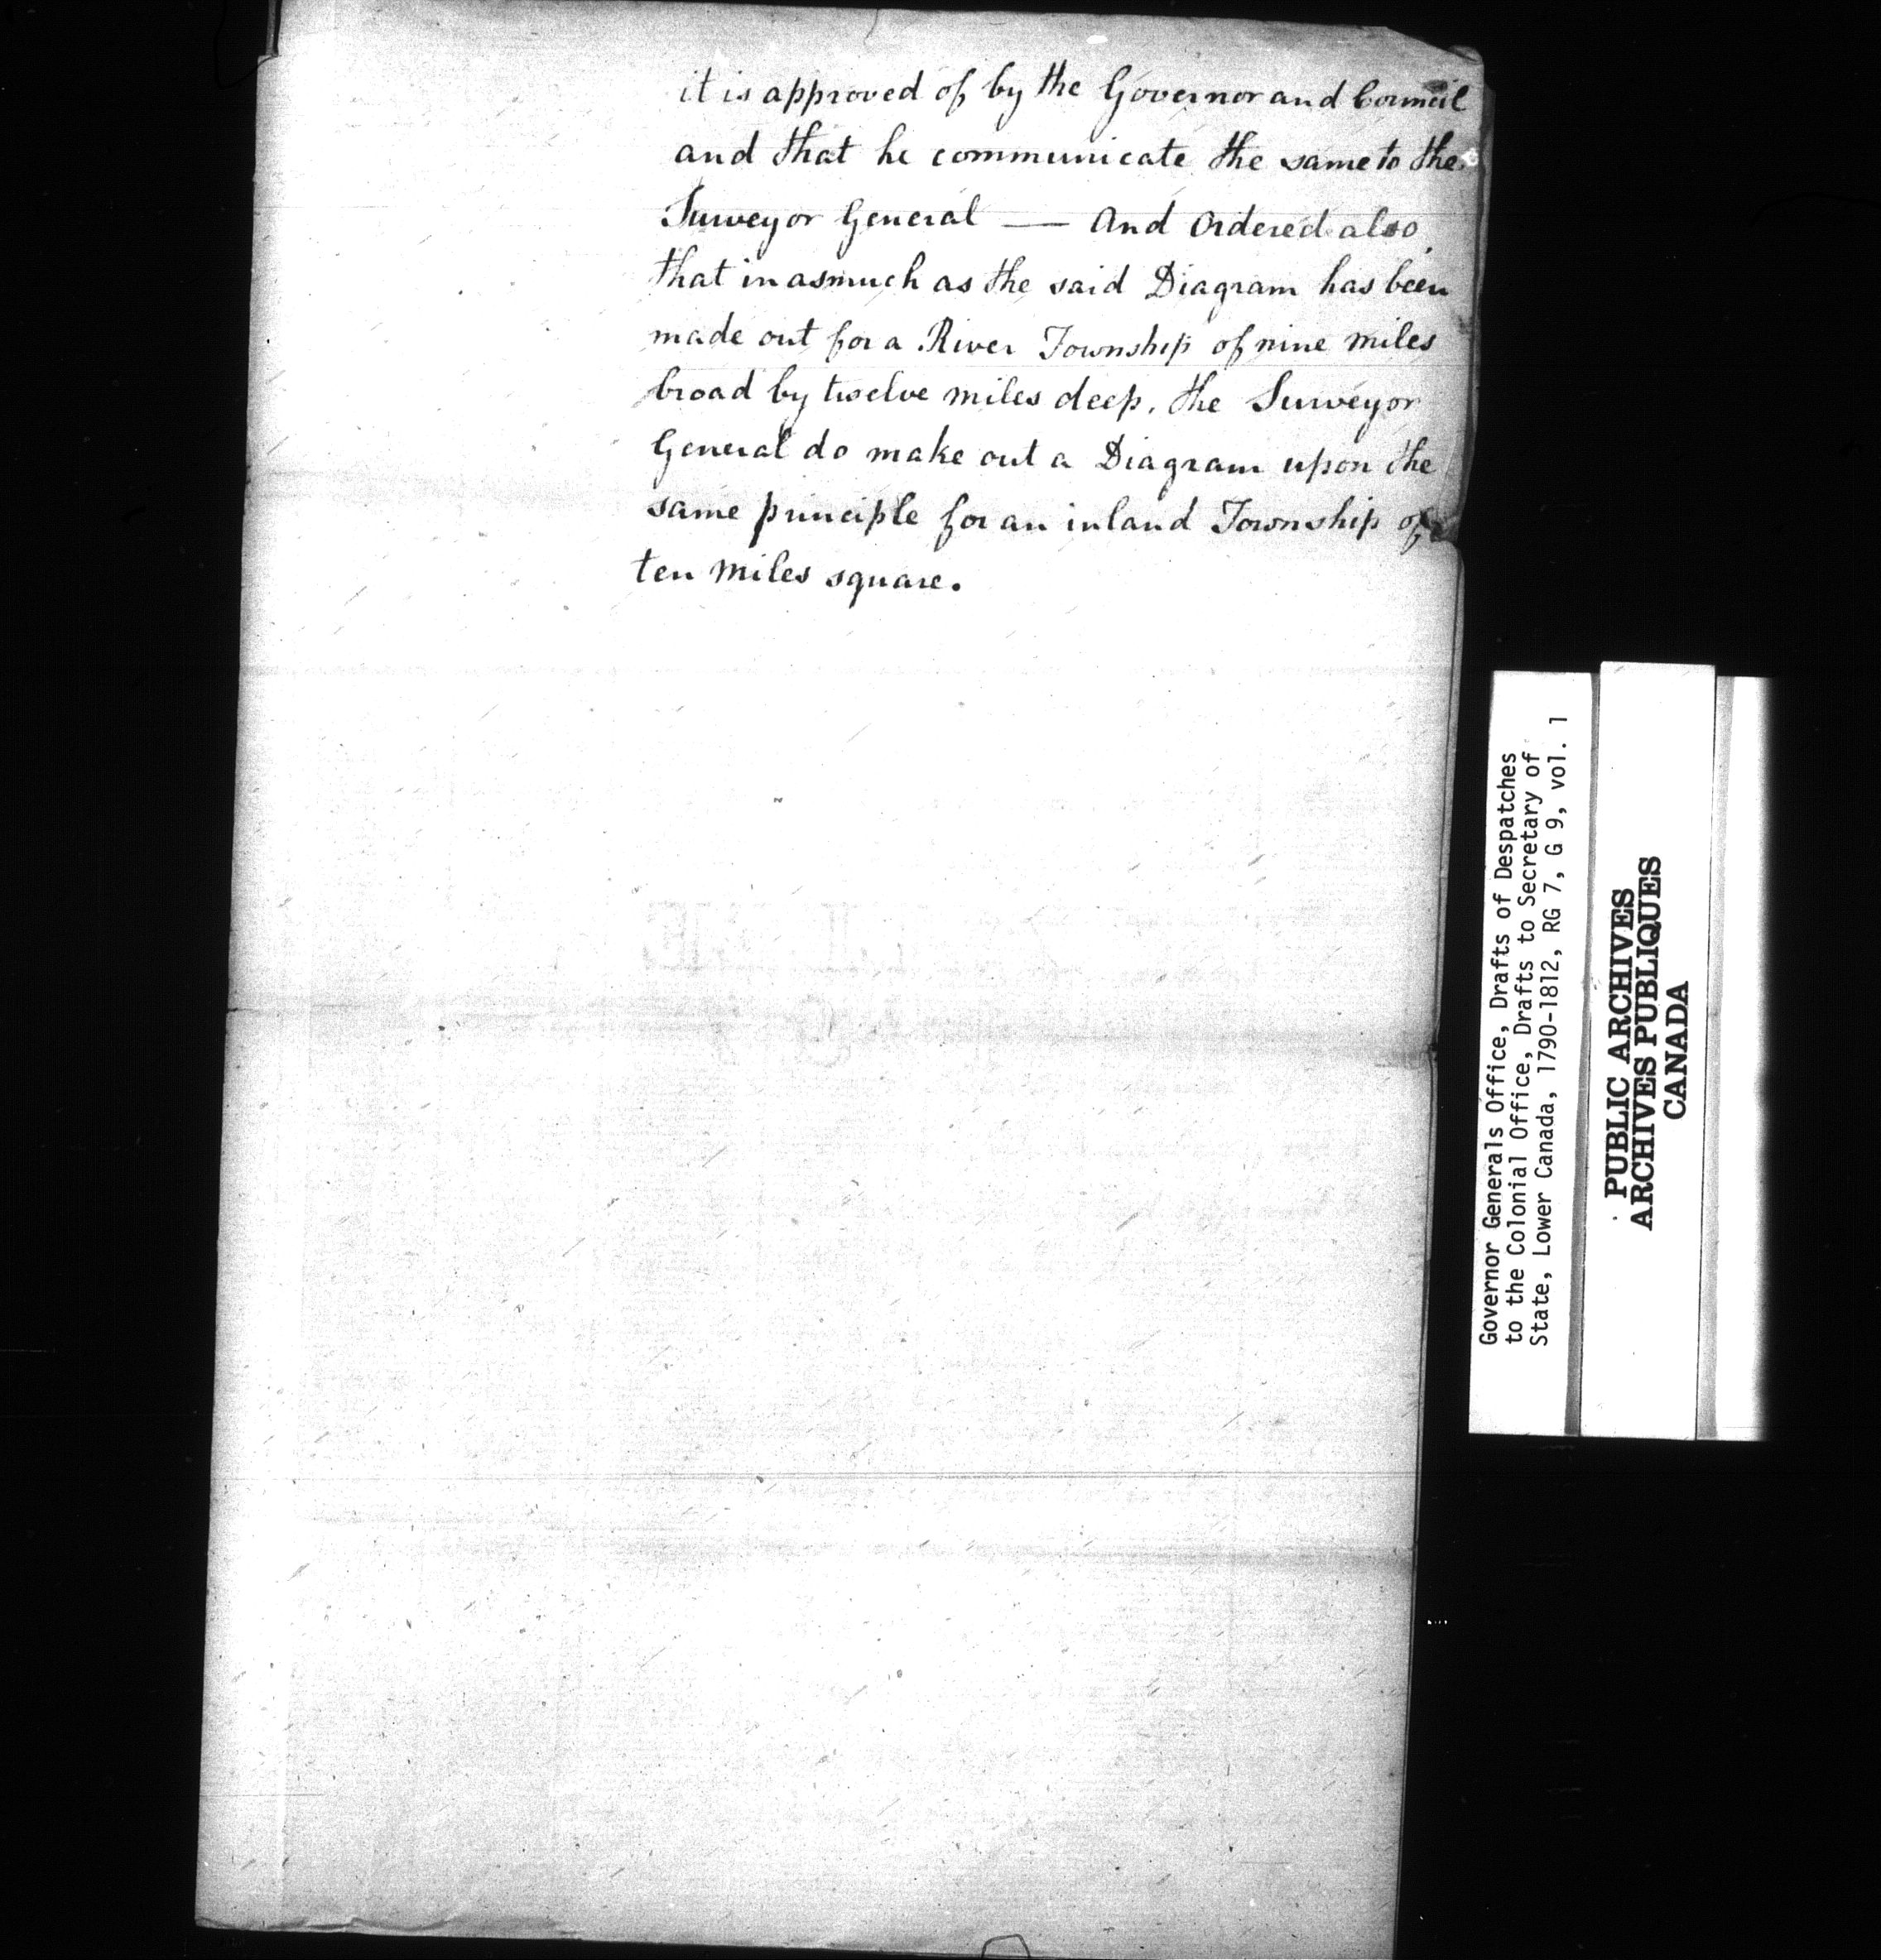 it is approved of by the Governor and Council
and that he communicate the same to the
Surveyor General — And Ordered also,
that inasmuch as the said Diagram has been
made out for a River Township of nine miles
broad by twelve miles deep, the Surveyor
General do make out a Diagram upon the
same principle for an inland Township of
ten miles square.
Governor Generals Office, Drafts of Despatches
to the Colonial Office, Drafts to Secretary of
State, Lower Canada, 1790-1812, RG 7, G 9, vol. 1
PUBLIC ARCHIVES
ARCHIVES PUBLIQUES
CANADA